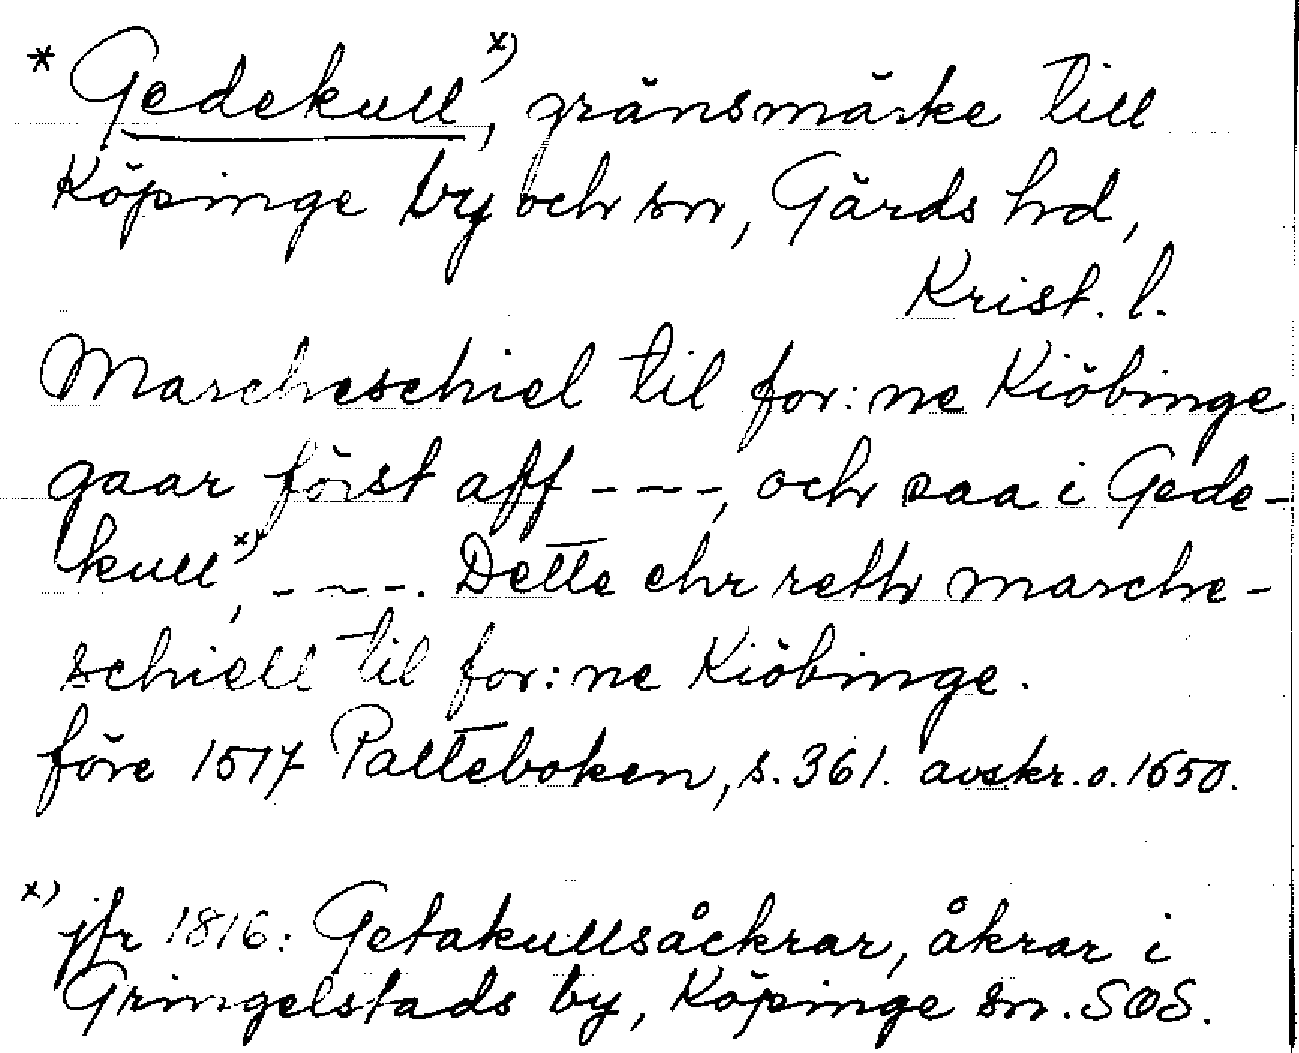 * Gedekull x), gränsmärke till
Köpinge by och sn, Gärds hd,
Krist. l.
Marscheschiel til for:ne Kiöbinge
gaar först aff ---, och saa i Gede-
kull x), ---. Dette ehr reth marsche-
schiell til for:ne Kiöbinge.
före 1517 Palteboken, s. 361. avskr. o. 1650.
x) jfr 1816: Getakullsåckrar, åkrar i
Gringelstads by, Köpinge sn. SOS.